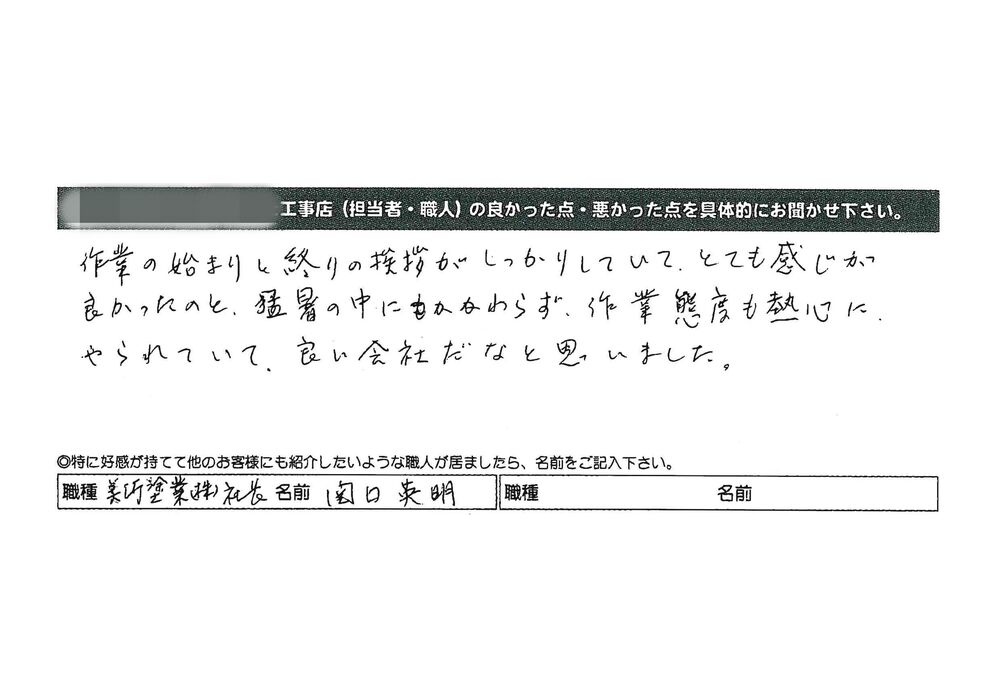 工事店（担当者・職人）の良かった点・悪かった点を具体的にお聞かせ下さい。
作業の始まりと終りの挨拶がしっかりしていて、とても感じが
良かったのと、猛暑の中にもかかわらず、作業態度も熱心に、
やられていて、良い会社だなと思いました。
◎特に好感が持てて他のお客様にも紹介したいような職人が居ましたら、名前をご記入下さい。
職種 美術塗業㈱社長 名前 関口英明 職種 名前